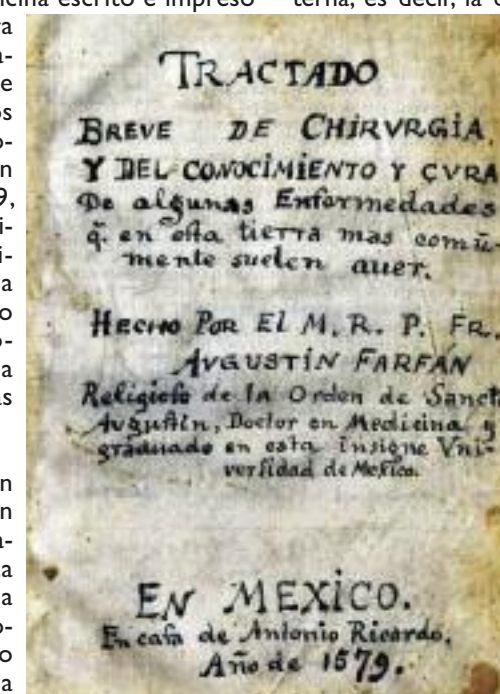 cina escrito e impreso
terna, es decir, la
ra
a-
e
os
o-
n
9,
i-
i-
a
o
o-
a
as
n
n
a-
a
a
o-
o
a
TRACTADO
BREVE DE CHIRVRGIA,
Y DEL CONOCIMIENTO Y CVRA
De algunas Enfermedades
q̃. en esta tierra mas comũ-
mente suelen auer.
HECHO POR El M. R. P. FR.
AVGUSTÍN FARFÁN
Religioso de la Orden de Sancto
Augustin, Doctor en Medicina y
graduado en esta insigne Vni-
versidad de Mexico.
EN MEXICO.
En casa de Antonio Ricardo.
Año de 1579.